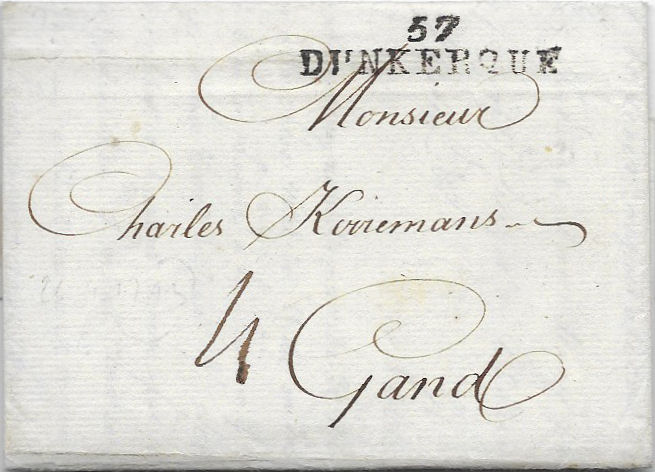 57
DUNKERQUE
Monsieur
Charles
4 Gand